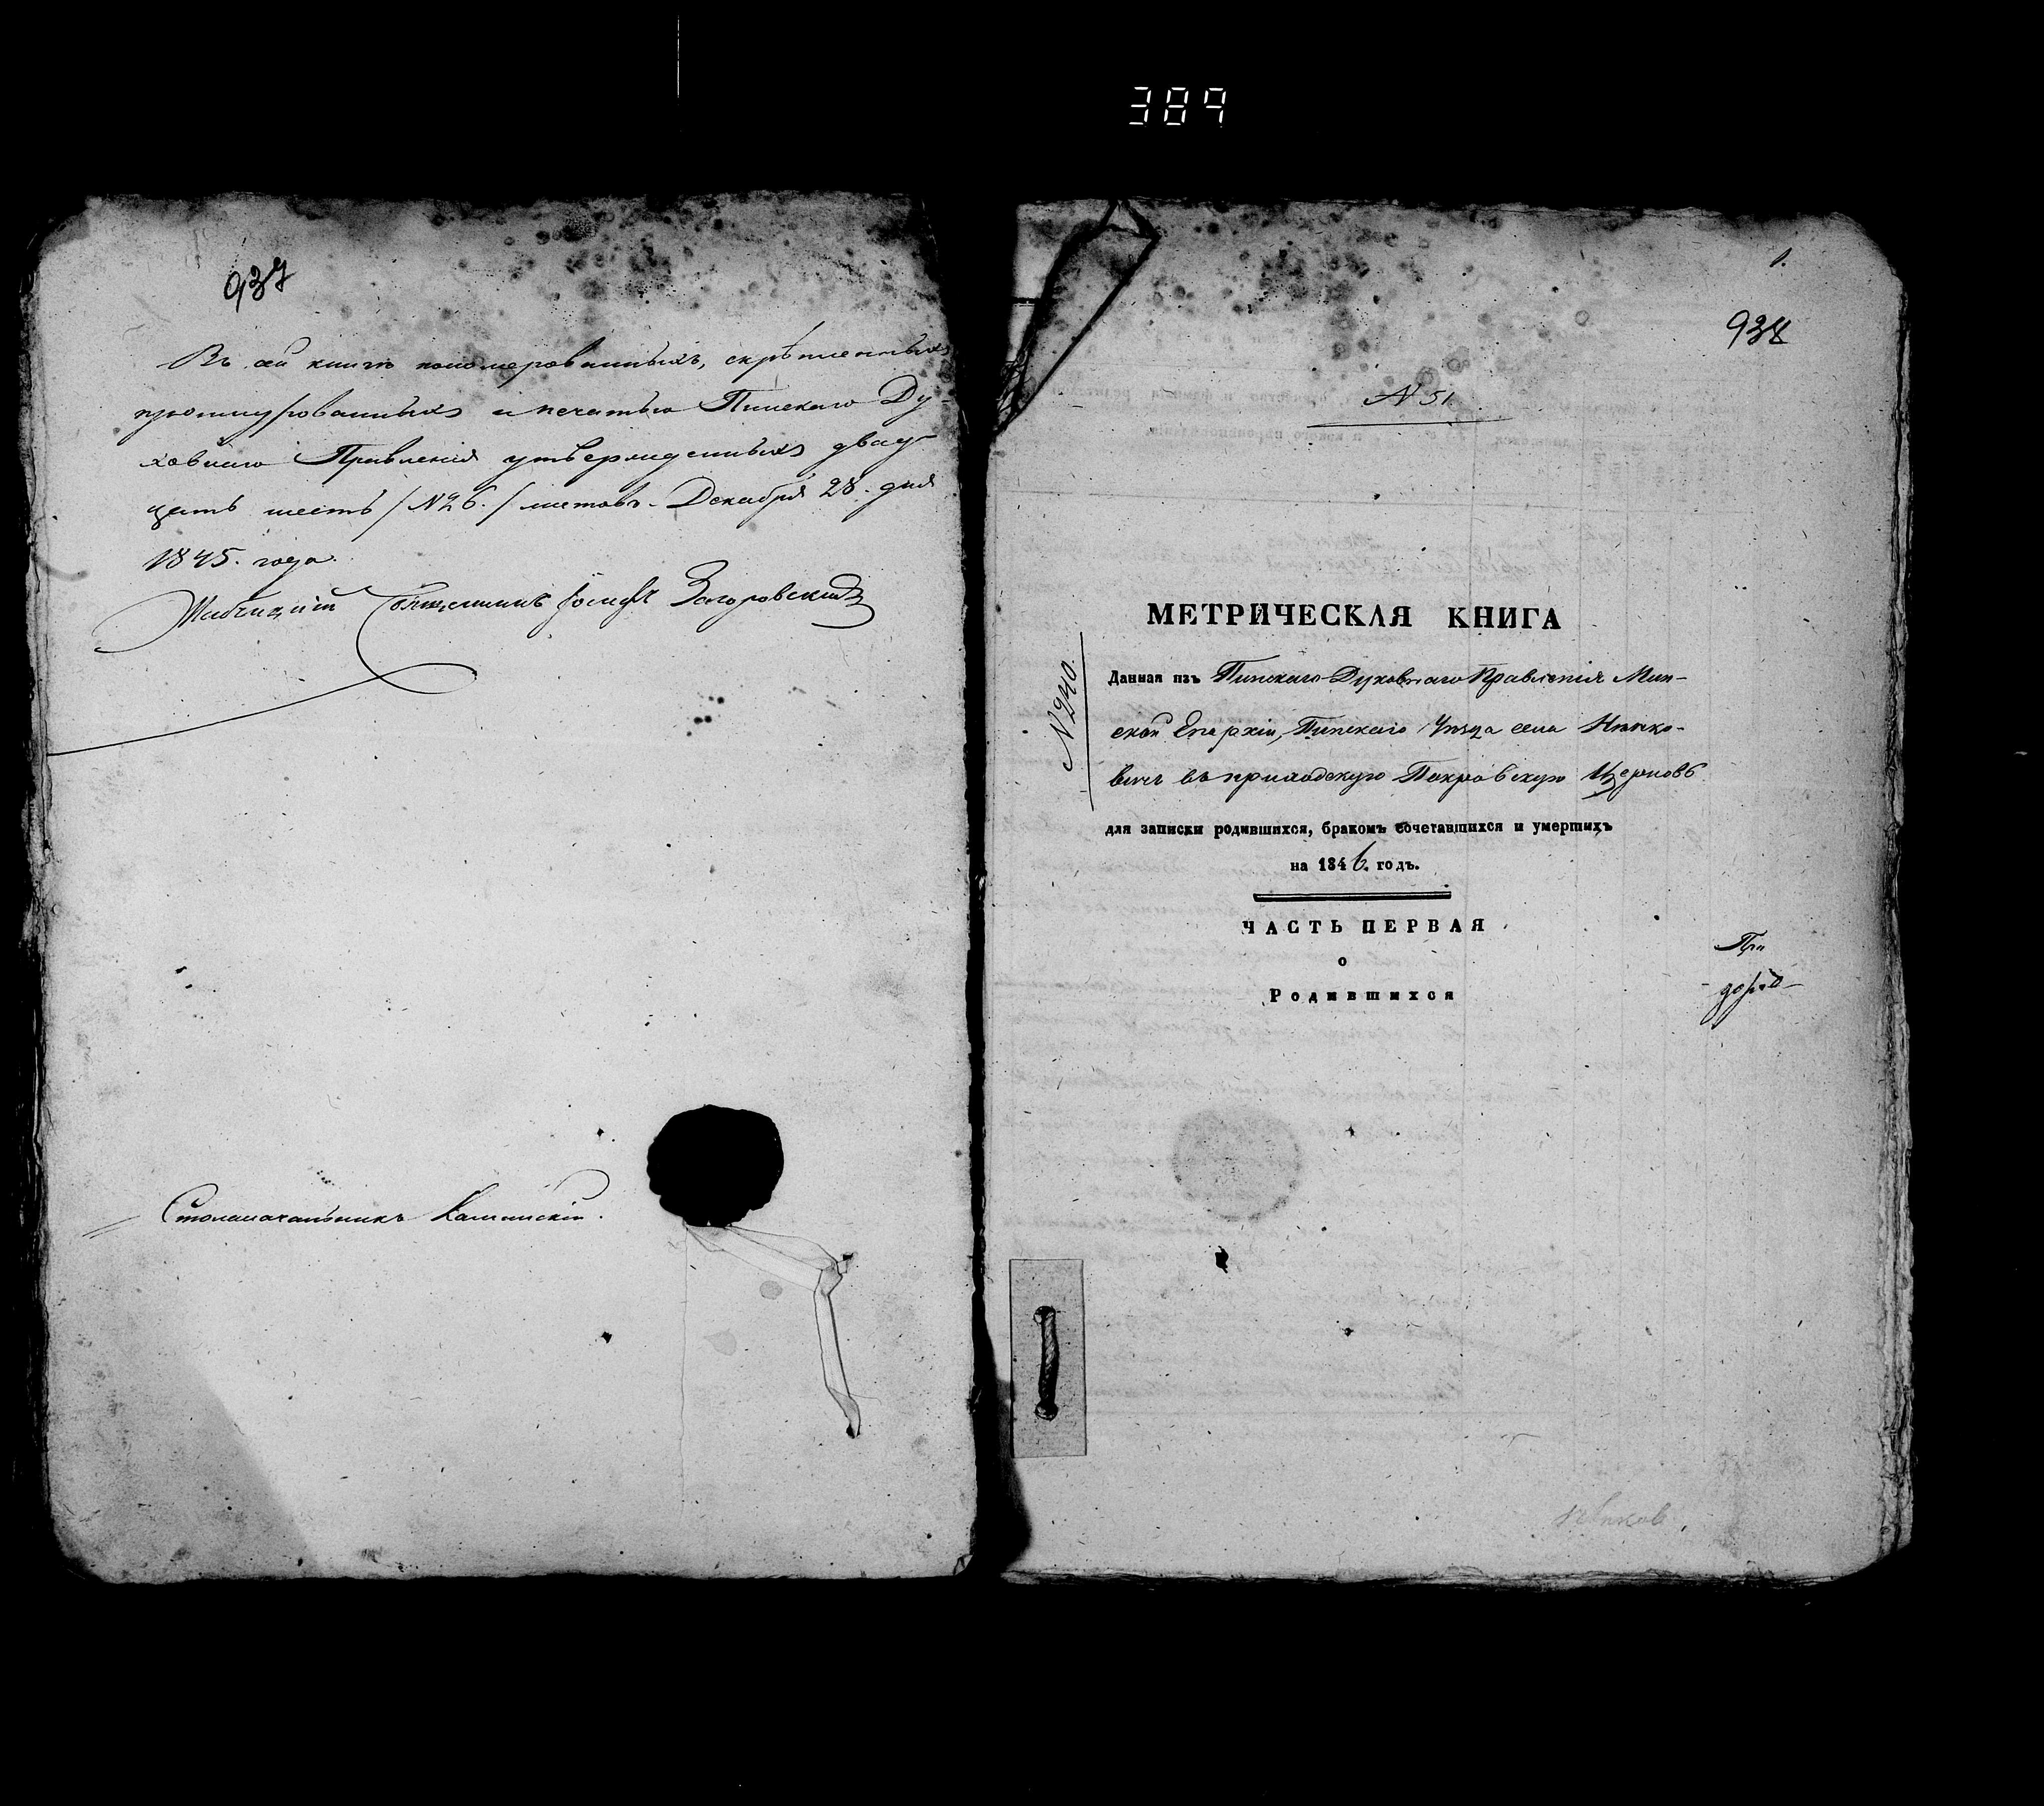 389
937
Въ сей книгѣ пономерованныхъ, скрѣпленныхъ
прошнурованныхъ и печатью Пинскаго Ду-
ховнаго Правленія утвержденныхъ двад-
цать шесть /№26./ листовъ. Декабря 28. дня
1845. года.
Священникъ Іосифъ Загоровскій
Столоначальникъ
1.
938
№ 51.
МЕТРИЧЕСКАЯ КНИГА
№ 240.
Данная изъ Пинскаго Духовнаго Правленія Мин-
ской Епархіи, Пинскаго Уѣзда села Нѣнко-
вичъ въ приходскую Покровскую Церковь
для записки родившихся, бракомъ сочетавшихся и умершихъ
на 1846. годъ.
ЧАСТЬ ПЕРВАЯ
о
Родившихся
При